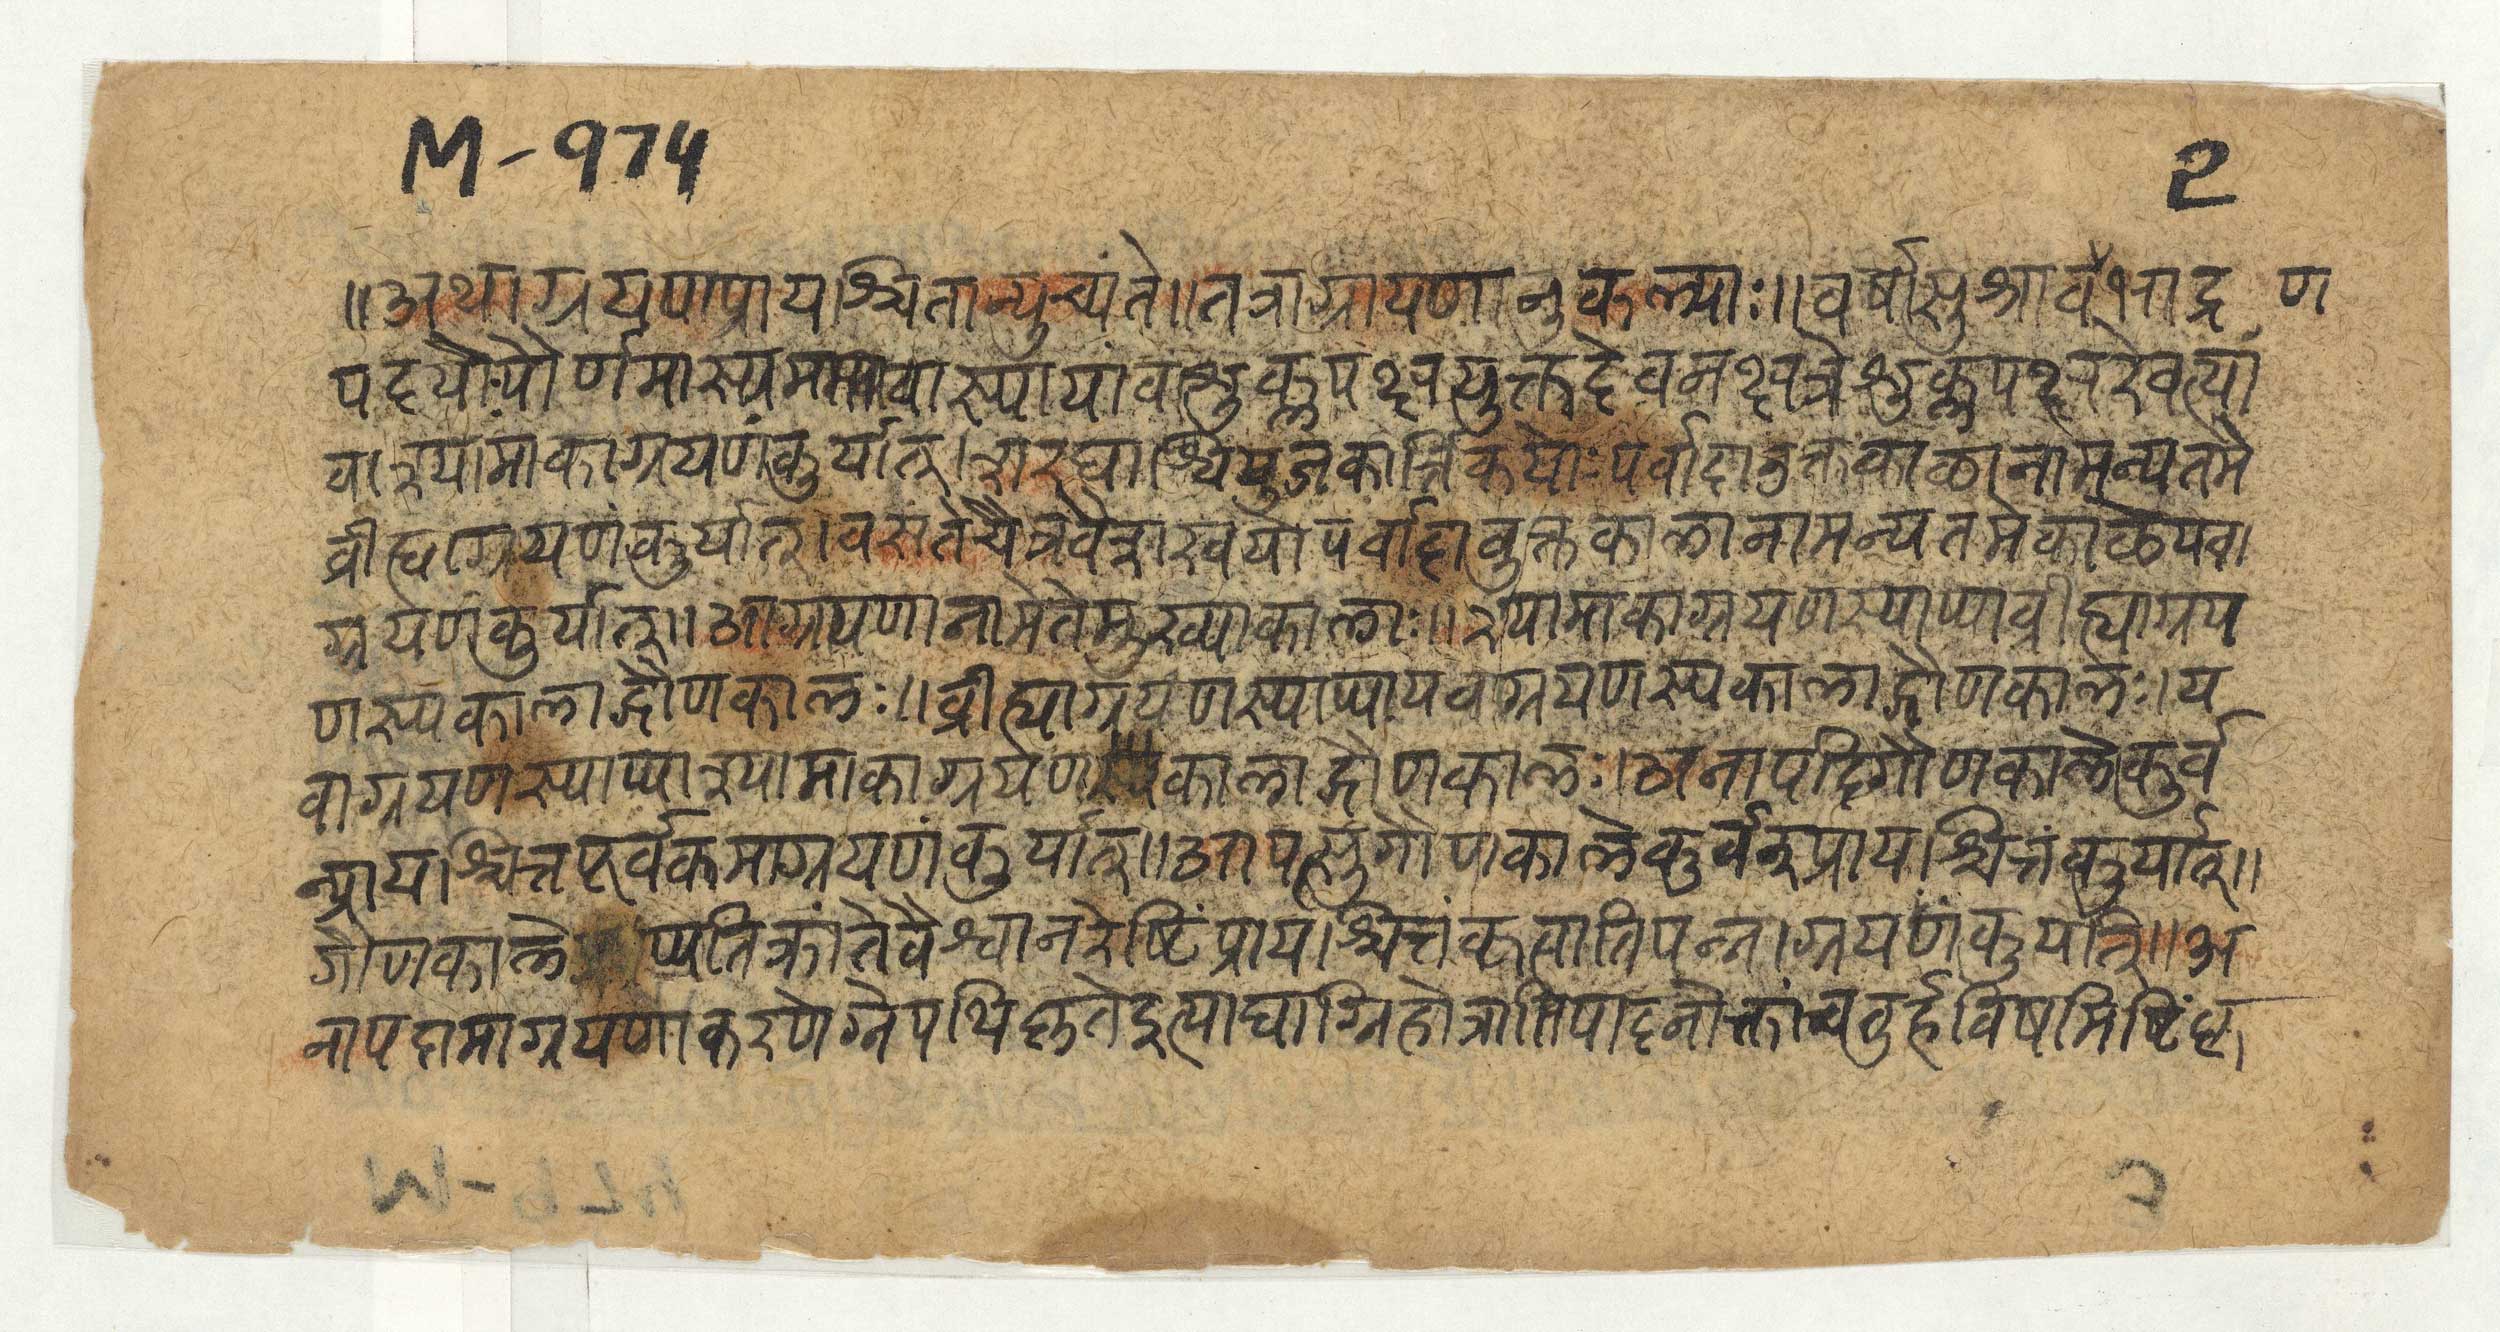 M-974
2
॥अथाग्रयणप्रायश्चितान्युच्यंते॥तत्राग्रायणानुकल्पाः॥वर्षासुश्रावभाद्र ण
पदयोःपौर्णमास्यममावास्यायांवाशुक्लपक्षयुक्तदेवनक्षत्रेशुक्लपक्षरेवत्यां
वाश्यामाकाग्रयणंकुर्यात्।शरद्याश्वियुजकार्त्तिकयोःपर्वादावुक्तकाळानामन्यतमे
व्रीह्याग्रयणंकुर्यात्।वसंतेचैत्रवैशाखयोपर्वादावुक्तकालानामन्यतमेकाळेयवा
ग्रयणंकुर्यात्॥आग्रयणानामेतेमुख्याकालाः॥श्यामाकाग्रयणस्याप्याव्रीह्याग्रय
णस्यकालाद्गौणकालः॥व्रीह्याग्रयणस्याप्यायवाग्रयणस्यकालाद्गौणकालः।य
वाग्रयणस्याप्याश्यामाकाग्रयणस्यकालाद्गौणकालः।अनापदिगौणकालेकुर्व
न्प्रायश्चित्तपूर्वकमाग्रयणंकुर्यात्॥आपत्सुगौणकालेकुर्वन्प्रायश्चित्तंकुर्यात्॥
गौणकाले प्यतिक्रांतेवैश्वानरेष्टिंप्रायश्चित्तंकृत्वातिपन्नाग्रयणंकुर्यात्॥अ
नापदामाग्रयणाकरणेग्नेपथिकृतेइत्याद्याग्निहोत्रातिपादनोक्तांचतुर्हविषमिष्टिंकृ